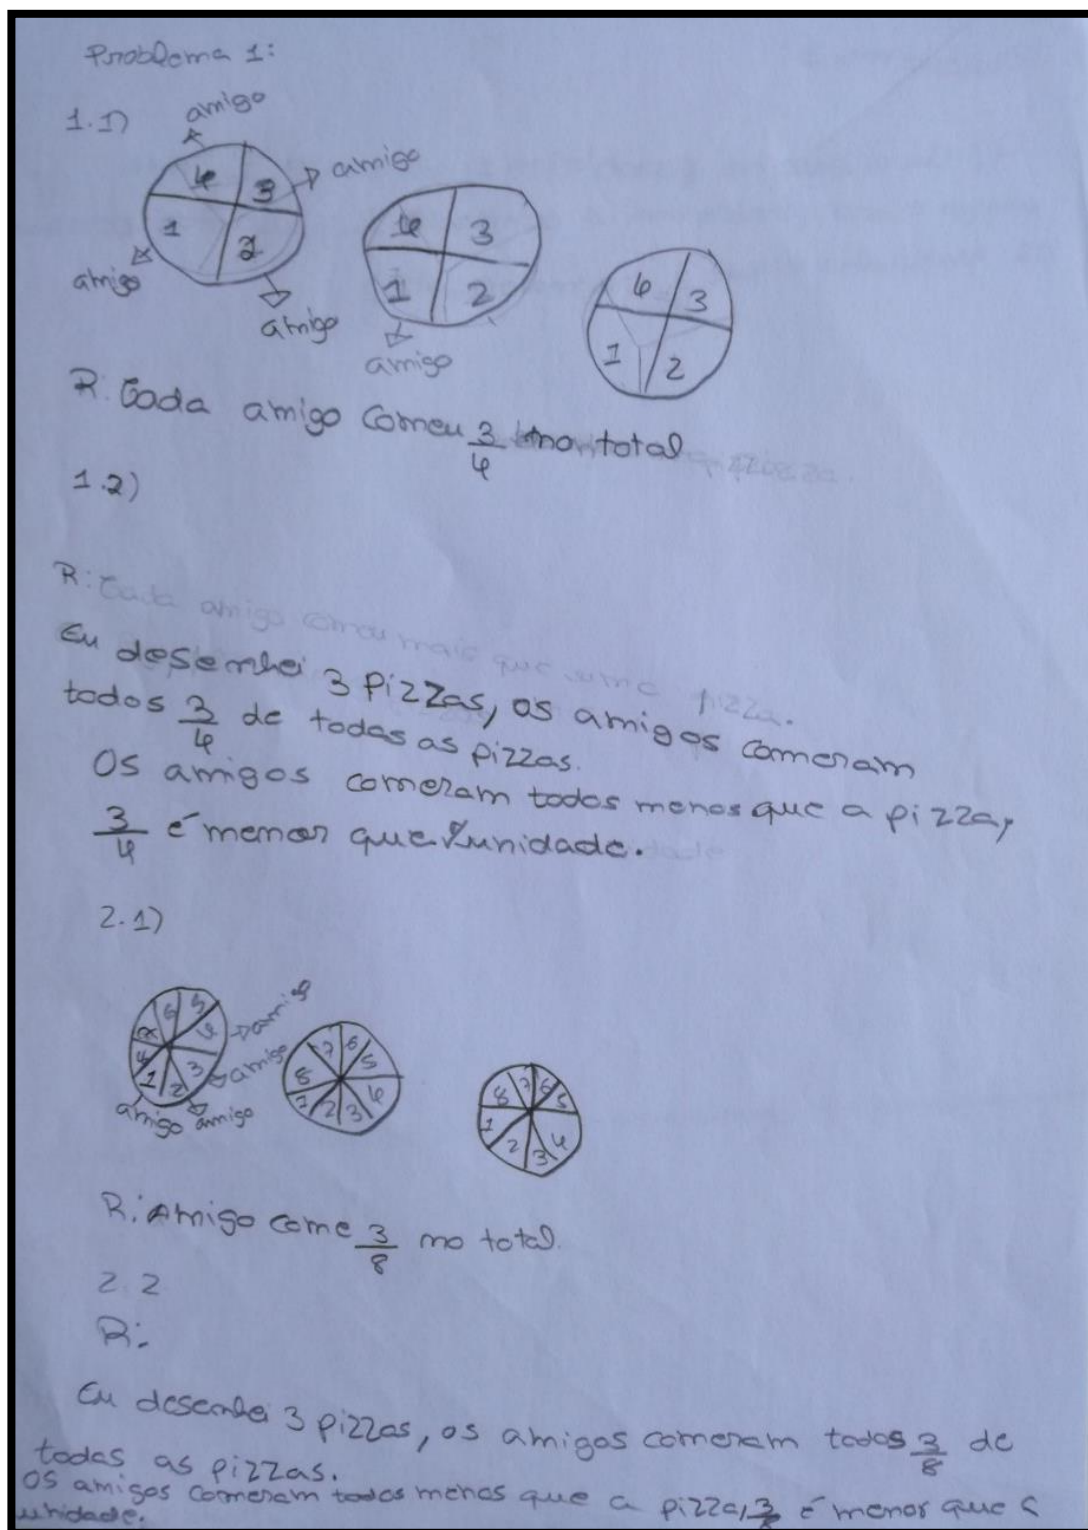 Problema 1:
1.1)
amigo
amigo
4 3
1 2
amigo
amigo
4 3
1 2
amigo
4 3
1 2
R: Cada amigo comeu 3/4 no total
1.2)
R: Cada amigo comeu mais que uma pizza.
Eu desenhei 3 pizzas, os amigos comeram
todos 3/4 de todas as pizzas.
Os amigos comeram todos menos que a pizza,
3/4 é menor que unidade.
2.1)
amigo
amigo
amigo amigo
1 2 3 4 5 6 7 8
1 2 3 4 5 6 7 8
1 2 3 4 5 6 7 8
R: Amigo come 3/8 no total.
2.2
R:
Eu desenhei 3 pizzas, os amigos comeram todos 3/8 de
todas as pizzas.
Os amigos comeram todos menos que a pizza, 3/8 é menor que a
unidade.